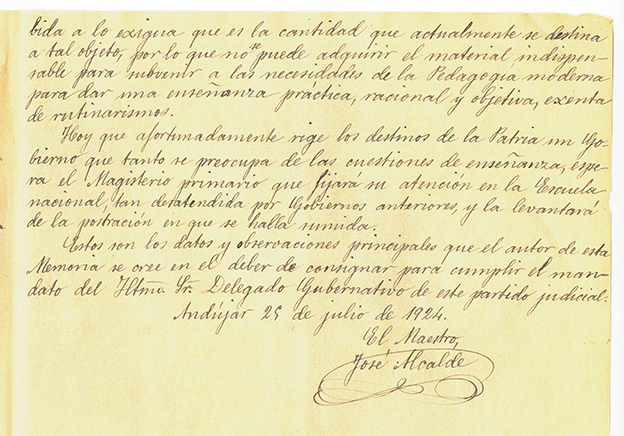 bida a lo exigua que es la cantidad que actualmente se destina
a tal objeto, por lo que no se puede adquirir el material indispen-
sable para subvenir a las necesidades de la Pedagogía moderna
para dar una enseñanza práctica, racional y objetiva, exenta
de rutinarismos.
Hoy que afortunadamente rige los destinos de la Patria un Go-
bierno que tanto se preocupa de las cuestiones de enseñanza, espe-
ra el Magisterio primario que fijará su atención en la Escuela
nacional, tan desatendida por Gobiernos anteriores, y la levantará
de la postración en que se halla sumida.
Estos son los datos y observaciones principales que el autor de esta
Memoria se cree en el deber de consignar para cumplir el man-
dato del Iltmo Sr. Delegado Gubernativo de este partido judicial.
Andújar 25 de julio de 1924.
El Maestro,
José Alcalde